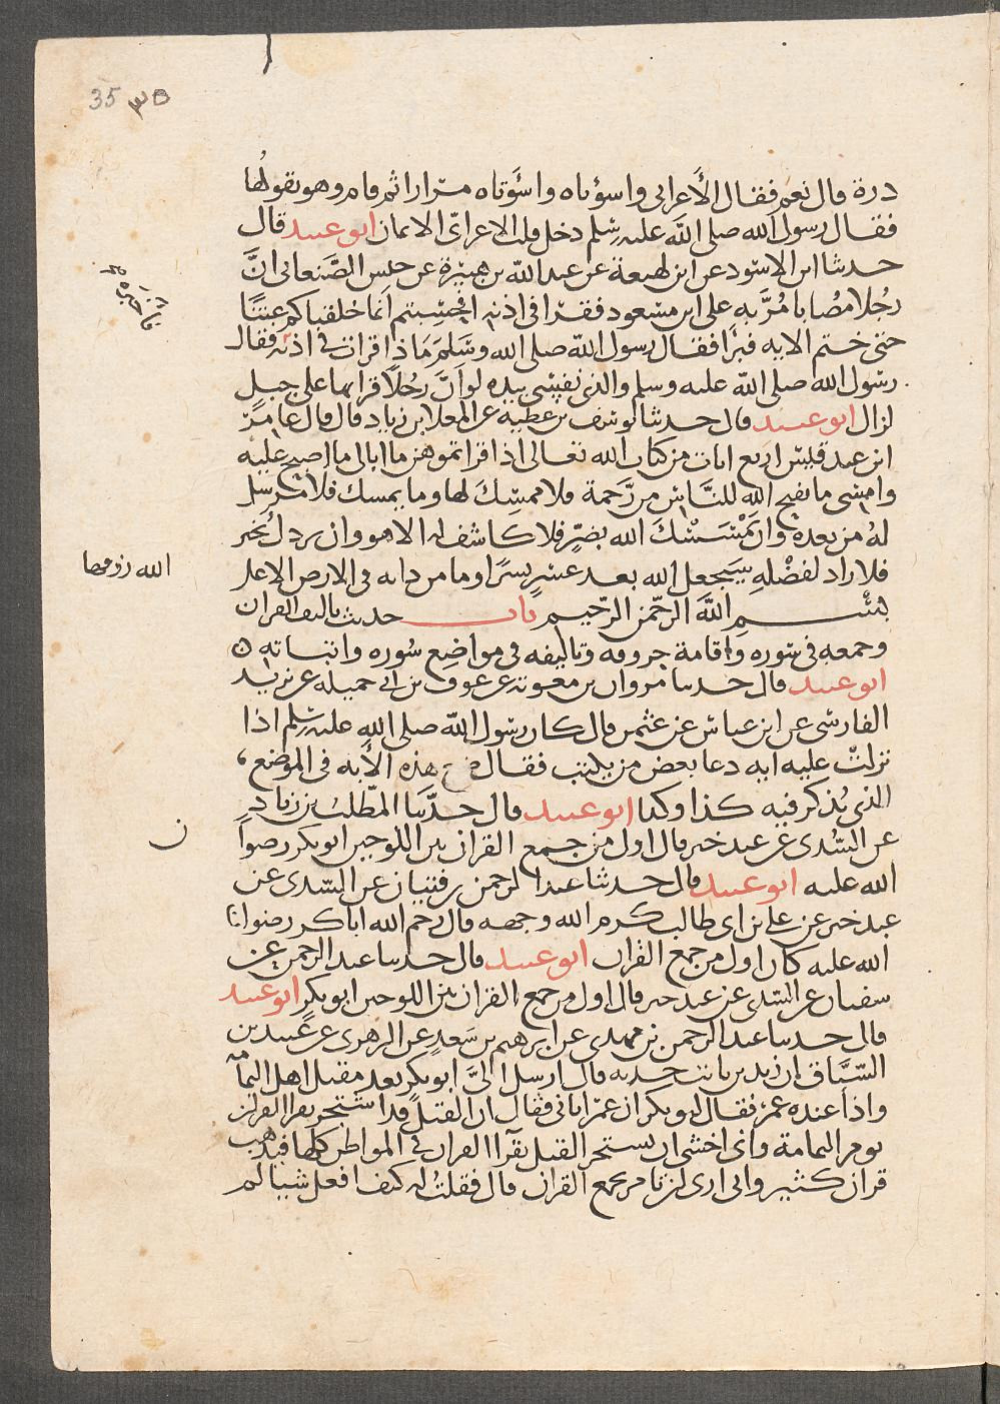 35 ٣٥
درة قال نعم فقال الأعرابي واسوءتاه واسوءتاه مرارا ثم قام وهو يقولها
فقال رسول الله صلى الله عليه وسلم دخل قلب الاعرابي الايمان ابو عبيد قال
حدثنا ابن الاسود عن ابن لهيعة عن عبد الله بن هبيرة عن حنس الصنعاني انّ
رجلا مصابا مُرَّ به على ابن مسعود فقرا في اذنه افحسبتم انما خلقناكم عبثا
حتى ختم الايه فبرأ فقال رسول الله صلى الله وسلم ماذا قرات في اذنه فقال
رسول الله صلى الله عليه وسلم والذي نفسي بيده لو انّ رجلا قراها على جبل
لزال ابو عبيد قال حدثنا يوسف بن عطيه عن المعلا بن زياد قال قال عامر
ابن عبد قيس اربع ايات من كتاب الله تعالى اذا قراتموهن ما ابالي ما اصبح عليه
وامسي ما يفتح الله للناس من رحمة فلا ممسك لها وما يمسك فلا مرسل
له من بعده وان يمسسك الله بضر فلا كاشف له الا هو وان يردك بخير
فلا راد لفضله سيجعل الله بعد عسر يسرا وما من دابه في الارض الا على
الله رزقها
بسم الله الرحمن الرحيم باب حديث تاليف القران
وجمعه في سوره واقامة حروفه وتاليفه في مواضع سوره واثباته ه
ابو عبيد قال حدثنا مروان بن معوية عن عوف بن ابي جميله عن يزيد
الفارسي عن ابن عباس عن عثمن قال كان رسول الله صلى الله عليه وسلم اذا
نزلت عليه ايه دعا بعض من يكتب فقال ضع هذه الأيه في الموضع
الذي يذكر فيه كذا وكذا ابو عبيد قال حدثنا المطلب بن زياد
عن السدي عن عبد خير قال اول من جمع القران بين اللوحين ابو بكر رضوان
الله عليه ابو عبيد قال حدثنا عبد الرحمن بن فتيان عن السدي عن
عبد خير عن علي بن ابي طالب كرم الله وجهه قال رحم الله ابا بكر رضوانا
الله عليه كان اول من جمع القران ابو عبيد قال حدثنا عبد الرحمن عن
سفيان عن السدي عن عبد خير قال اول من جمع القران بين اللوحين ابو بكر ابو عبيد
قال حدثنا عبد الرحمن بن مهدي عن ابرهيم بن سعد عن الزهري عن عبيد بن
السباق ان زيد بن ثابت حدثه قال ارسل اليّ ابو بكر بعد مقتل اهل اليمامة
واذا عنده عمر فقال ابو بكر ان عمر اتاني فقال ان القتل قد استحر بقرا القران
يوم اليمامة واني اخشى ان يستحر القتل بقرآا القران في المواطن كلها فيذهب
قران كثير واني ارى ان تامر بجمع القران قال فقلت له كيف افعل شيا لم